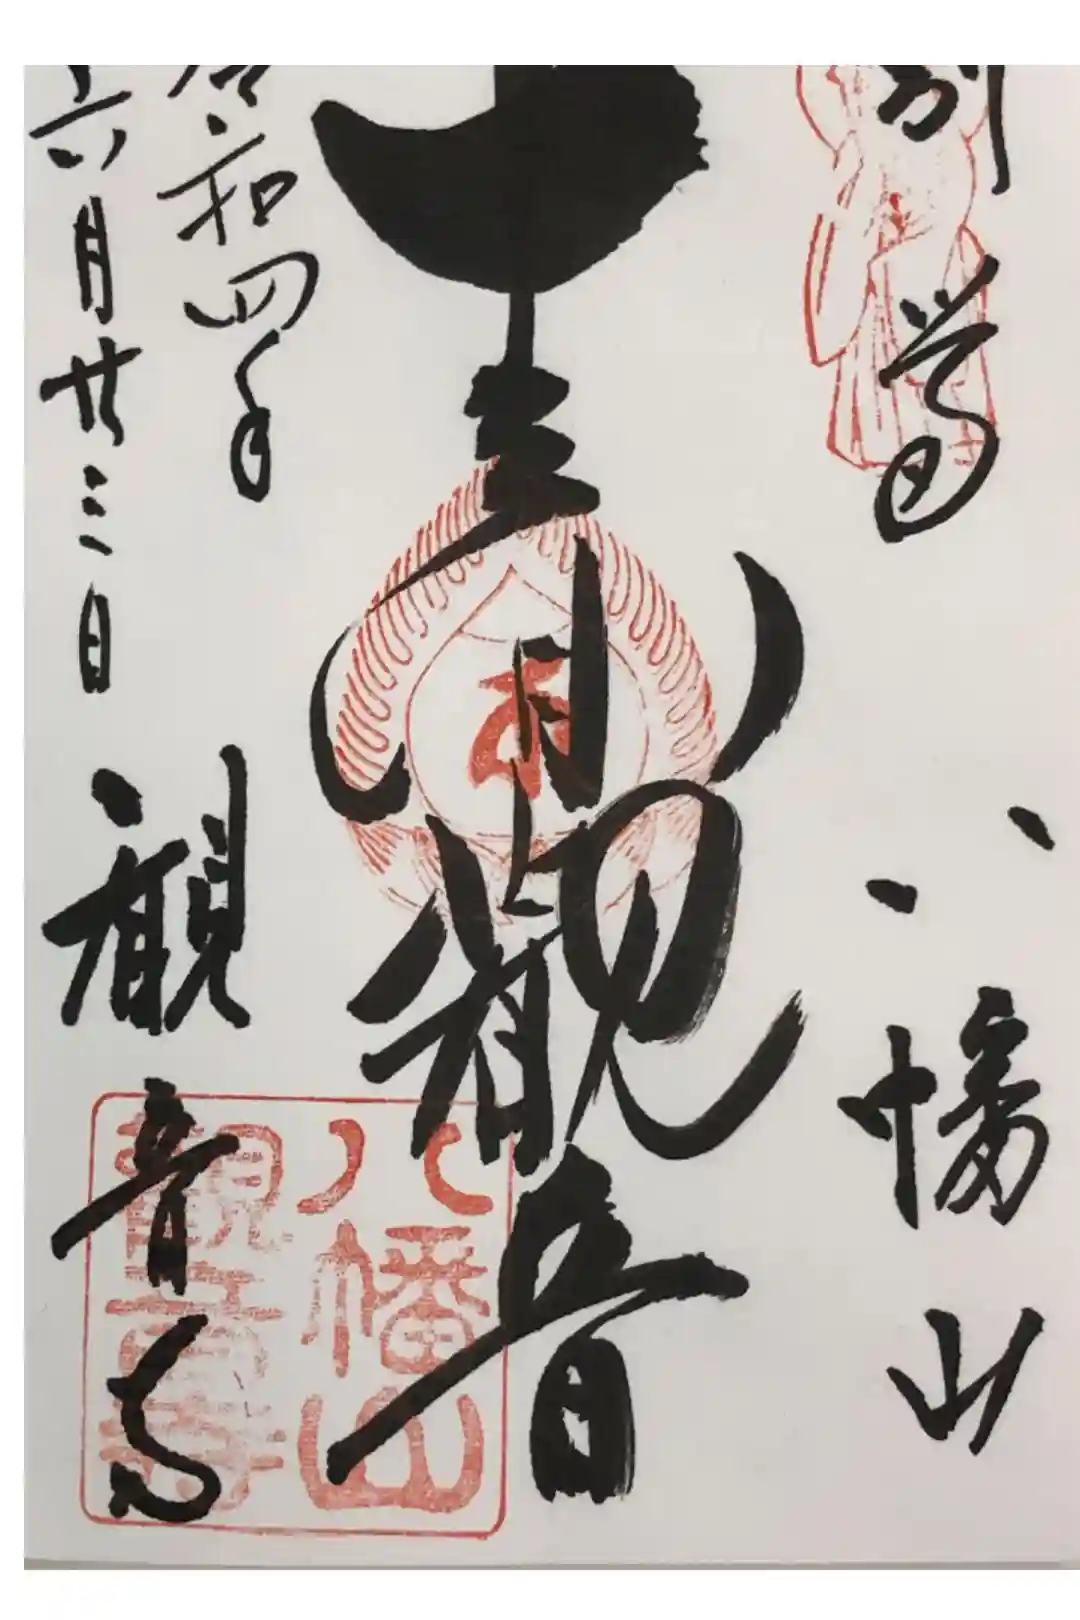 別當
八幡山
観音
令和四年
六月廿三日
観音寺
八幡山
観音寺